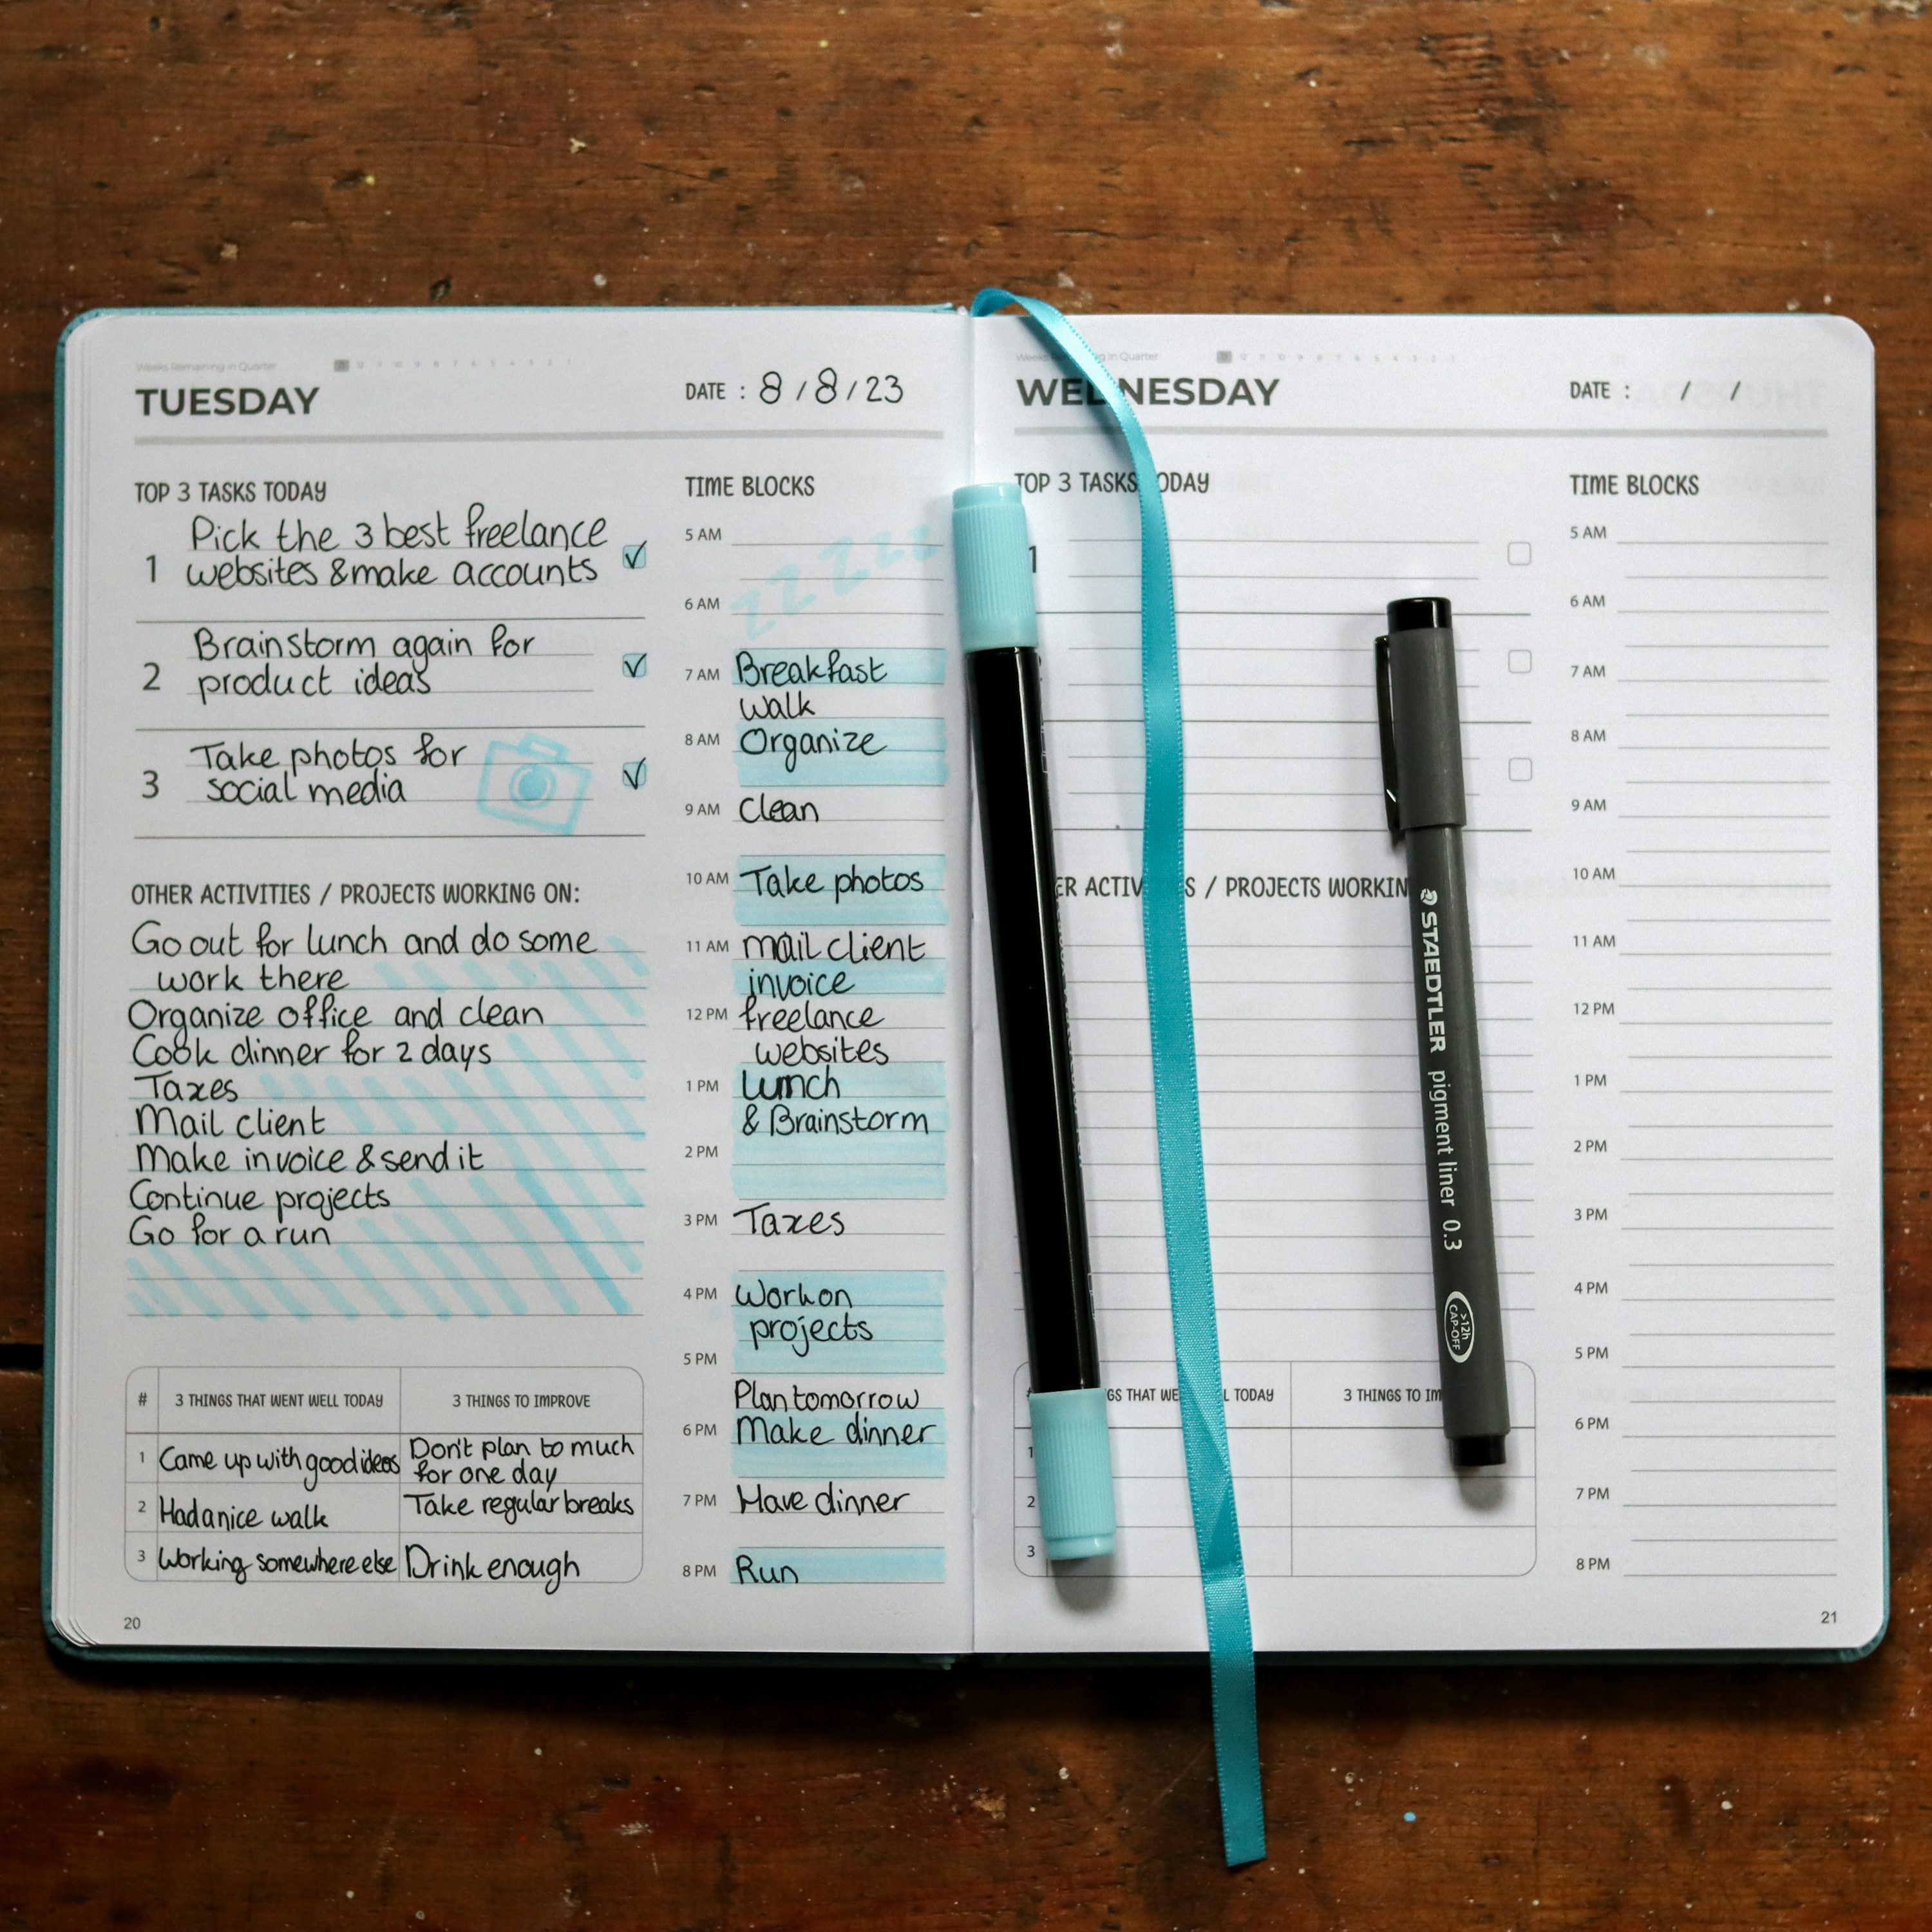 Weeks Remaining in Quarter
TUESDAY
DATE : 8/8/23
TOP 3 TASKS TODAY
1 Pick the 3 best freelance
websites & make accounts
2 Brainstorm again for
product ideas
3 Take photos for
social media
OTHER ACTIVITIES / PROJECTS WORKING ON:
Go out for lunch and do some
work there
Organize office and clean
Cook dinner for 2 days
Taxes
Mail client
Make invoice & send it
Continue projects
Go for a run
# 3 THINGS THAT WENT WELL TODAY 3 THINGS TO IMPROVE
1 Came up with good ideas Don't plan to much
for one day
2 Had a nice walk Take regular breaks
3 Working somewhere else Drink enough
20
TIME BLOCKS
5 AM
zzzzzz
6 AM
7 AM Breakfast
walk
8 AM Organize
9 AM Clean
10 AM Take photos
11 AM mail client
invoice
12 PM freelance
websites
1 PM Lunch
& Brainstorm
2 PM
3 PM Taxes
4 PM Work on
projects
5 PM
Plan tomorrow
6 PM Make dinner
7 PM Have dinner
8 PM Run
WEDNESDAY
DATE : / /
TOP 3 TASKS TODAY
1
ACTIV S / PROJECTS WORKIN
# GS THAT WE L TODAY 3 THINGS TO IM
1
2
3
TIME BLOCKS
5 AM
6 AM
7 AM
8 AM
9 AM
10 AM
11 AM
12 PM
1 PM
2 PM
3 PM
4 PM
5 PM
6 PM
7 PM
8 PM
21
STAEDTLER pigment liner 0.3
>12h
CAP-OFF